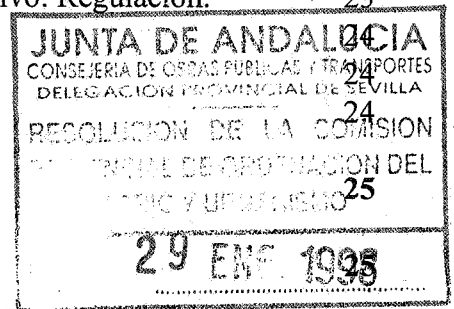 Regulación. 23
JUNTA DE ANDALUCIA 24
CONSEJERIA DE OBRAS PUBLICAS Y TRANSPORTES 24
DELEGACION PROVINCIAL DE SEVILLA
RESOLUCION DE LA COMISION 24
DE ORDENACION DEL
Y URBANISMO 25
29 ENE 25